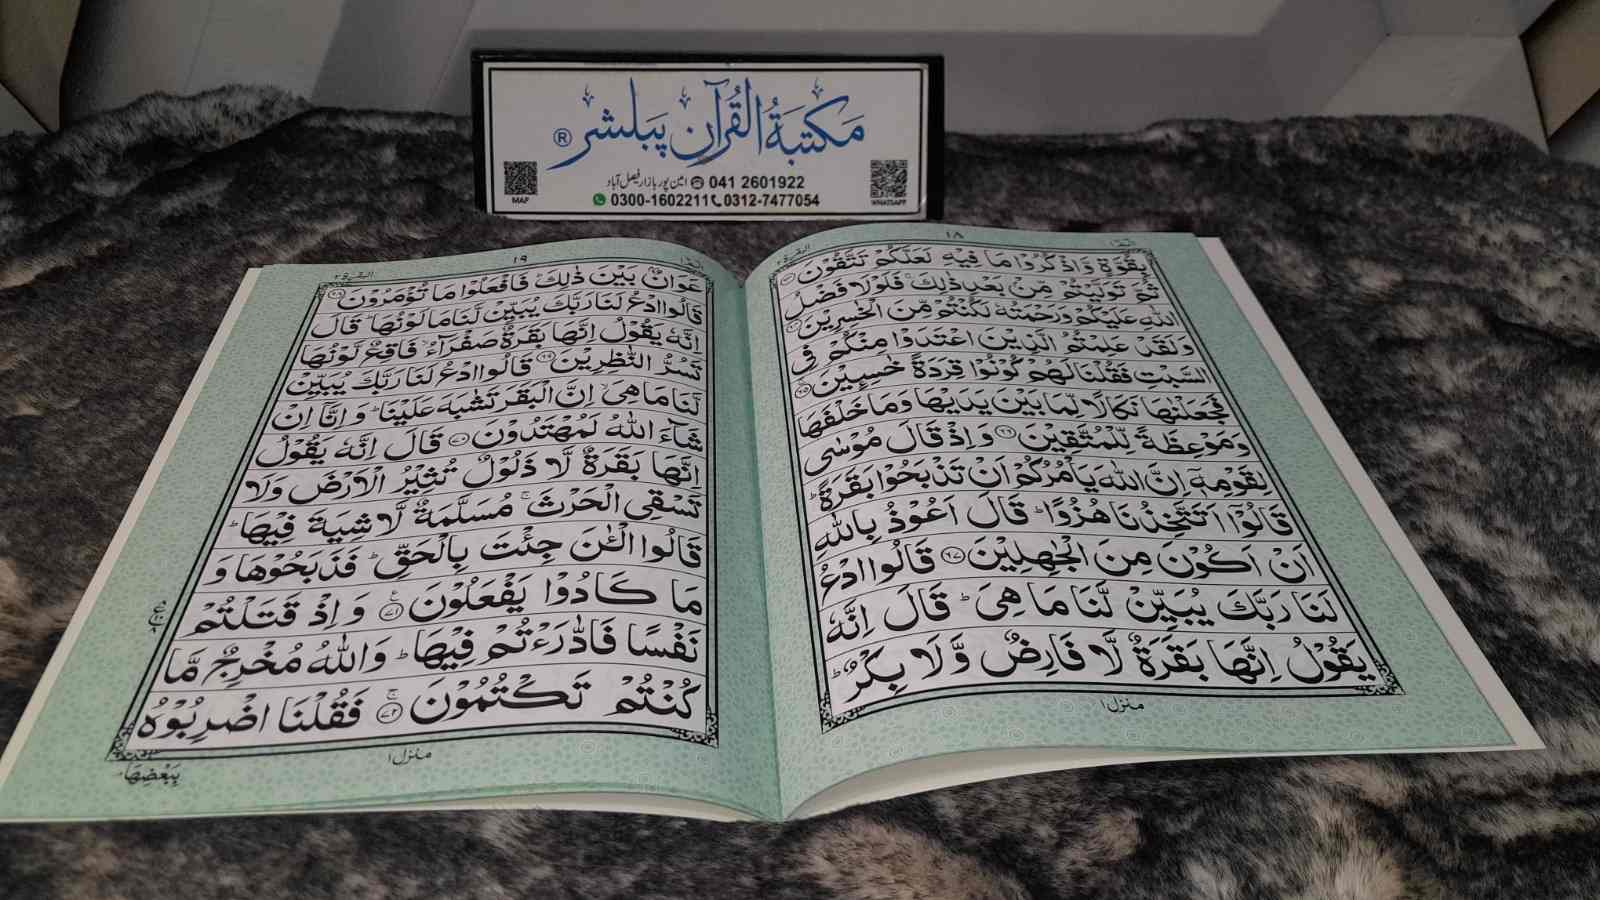 مَکتبَةُ القُرآن پَبلشر ®
امین پور بازار فیصل آباد 041 2601922
0300-1602211 0312-7477054
MAP
WHATSAPP
١٨
البقرة ٢
بِقُوَّةٍ وَّاذْكُرُوْا مَا فِيْهِ لَعَلَّكُمْ تَتَّقُوْنَ ٦٣
ثُمَّ تَوَلَّيْتُمْ مِّنْۢ بَعْدِ ذٰلِكَ ۚ فَلَوْلَا فَضْلُ
اللّٰهِ عَلَيْكُمْ وَرَحْمَتُهٗ لَكُنْتُمْ مِّنَ الْخٰسِرِيْنَ ٦٤
وَلَقَدْ عَلِمْتُمُ الَّذِيْنَ اعْتَدَوْا مِنْكُمْ فِى
السَّبْتِ فَقُلْنَا لَهُمْ كُوْنُوْا قِرَدَةً خٰسِـِٕيْنَ ٦٥
فَجَعَلْنٰهَا نَكَالًا لِّمَا بَيْنَ يَدَيْهَا وَمَا خَلْفَهَا
وَمَوْعِظَةً لِّلْمُتَّقِيْنَ ٦٦ وَاِذْ قَالَ مُوْسٰى
لِقَوْمِهٖۤ اِنَّ اللّٰهَ يَاْمُرُكُمْ اَنْ تَذْبَحُوْا بَقَرَةً ؕ
قَالُوْۤا اَتَتَّخِذُنَا هُزُوًا ؕ قَالَ اَعُوْذُ بِاللّٰهِ
اَنْ اَكُوْنَ مِنَ الْجٰهِلِيْنَ ٦٧ قَالُوا ادْعُ
لَنَا رَبَّكَ يُبَيِّنْ لَّنَا مَا هِىَ ؕ قَالَ اِنَّهٗ
يَقُوْلُ اِنَّهَا بَقَرَةٌ لَّا فَارِضٌ وَّلَا بِكْرٌ ؕ
منزل ١
١٩
البقرة ٢
عَوَانٌۢ بَيْنَ ذٰلِكَ ؕ فَافْعَلُوْا مَا تُؤْمَرُوْنَ ٦٨
قَالُوا ادْعُ لَنَا رَبَّكَ يُبَيِّنْ لَّنَا مَا لَوْنُهَا ؕ قَالَ
اِنَّهٗ يَقُوْلُ اِنَّهَا بَقَرَةٌ صَفْرَآءُ ۙ فَاقِعٌ لَّوْنُهَا
تَسُرُّ النّٰظِرِيْنَ ٦٩ قَالُوا ادْعُ لَنَا رَبَّكَ يُبَيِّنْ
لَّنَا مَا هِىَ ۙ اِنَّ الْبَقَرَ تَشٰبَهَ عَلَيْنَا ؕ وَاِنَّاۤ اِنْ
شَآءَ اللّٰهُ لَمُهْتَدُوْنَ ٧٠ قَالَ اِنَّهٗ يَقُوْلُ
اِنَّهَا بَقَرَةٌ لَّا ذَلُوْلٌ تُثِيْرُ الْاَرْضَ وَلَا
تَسْقِى الْحَرْثَ ۚ مُسَلَّمَةٌ لَّا شِيَةَ فِيْهَا ؕ
قَالُوا الْـٰٔنَ جِئْتَ بِالْحَقِّ ؕ فَذَبَحُوْهَا وَ
مَا كَادُوْا يَفْعَلُوْنَ ٧١ وَاِذْ قَتَلْتُمْ
نَفْسًا فَادّٰرَءْتُمْ فِيْهَا ؕ وَاللّٰهُ مُخْرِجٌ مَّا
كُنْتُمْ تَكْتُمُوْنَ ۚ ٧٢ فَقُلْنَا اضْرِبُوْهُ
منزل ١
بِبَعْضِهَا